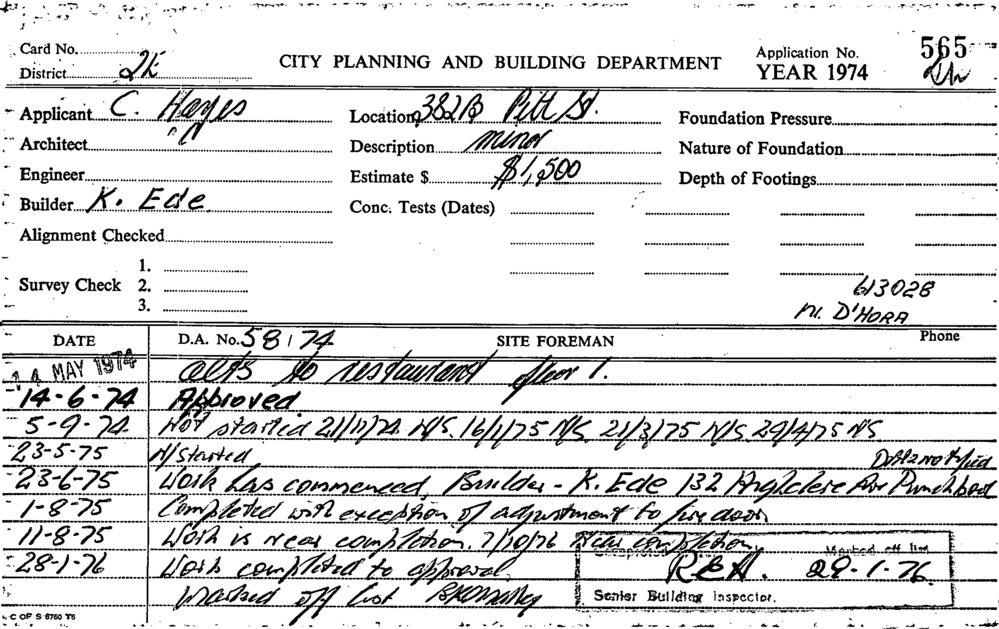 Card No.
District 2h
CITY PLANNING AND BUILDING DEPARTMENT
Application No. 565
YEAR 1974
Applicant C. Hayes
Location 382B Pitt St.
Foundation Pressure
Architect
Description minor
Nature of Foundation
Engineer
Estimate $ $1,500
Depth of Footings
Builder K. Ede
Conc. Tests (Dates)
Alignment Checked
Survey Check
1.
2.
3.
613028
M. D'HORA
DATE
D.A. No. 58/74
SITE FOREMAN
Phone
14 MAY 1974 alts to restaurant floor 1.
14-6-74 Approved
5-9-74 Not started 21/11/74 N/S. 16/1/75 N/S 21/3/75 N/S 29/4/75 N/S
23-5-75 N/Started
23-6-75 Work has commenced. Builder - K. Ede 132 Highclere Ave Punchbowl
1-8-75 Completed with exception of adjustment to fire door
11-8-75 Work is near completion. 7/10/76 Near completion
28-1-76 Work completed to approval.
marked off list
Marked off list
29-1-76.
Senior Building Inspector.
C OF S 6750 T5